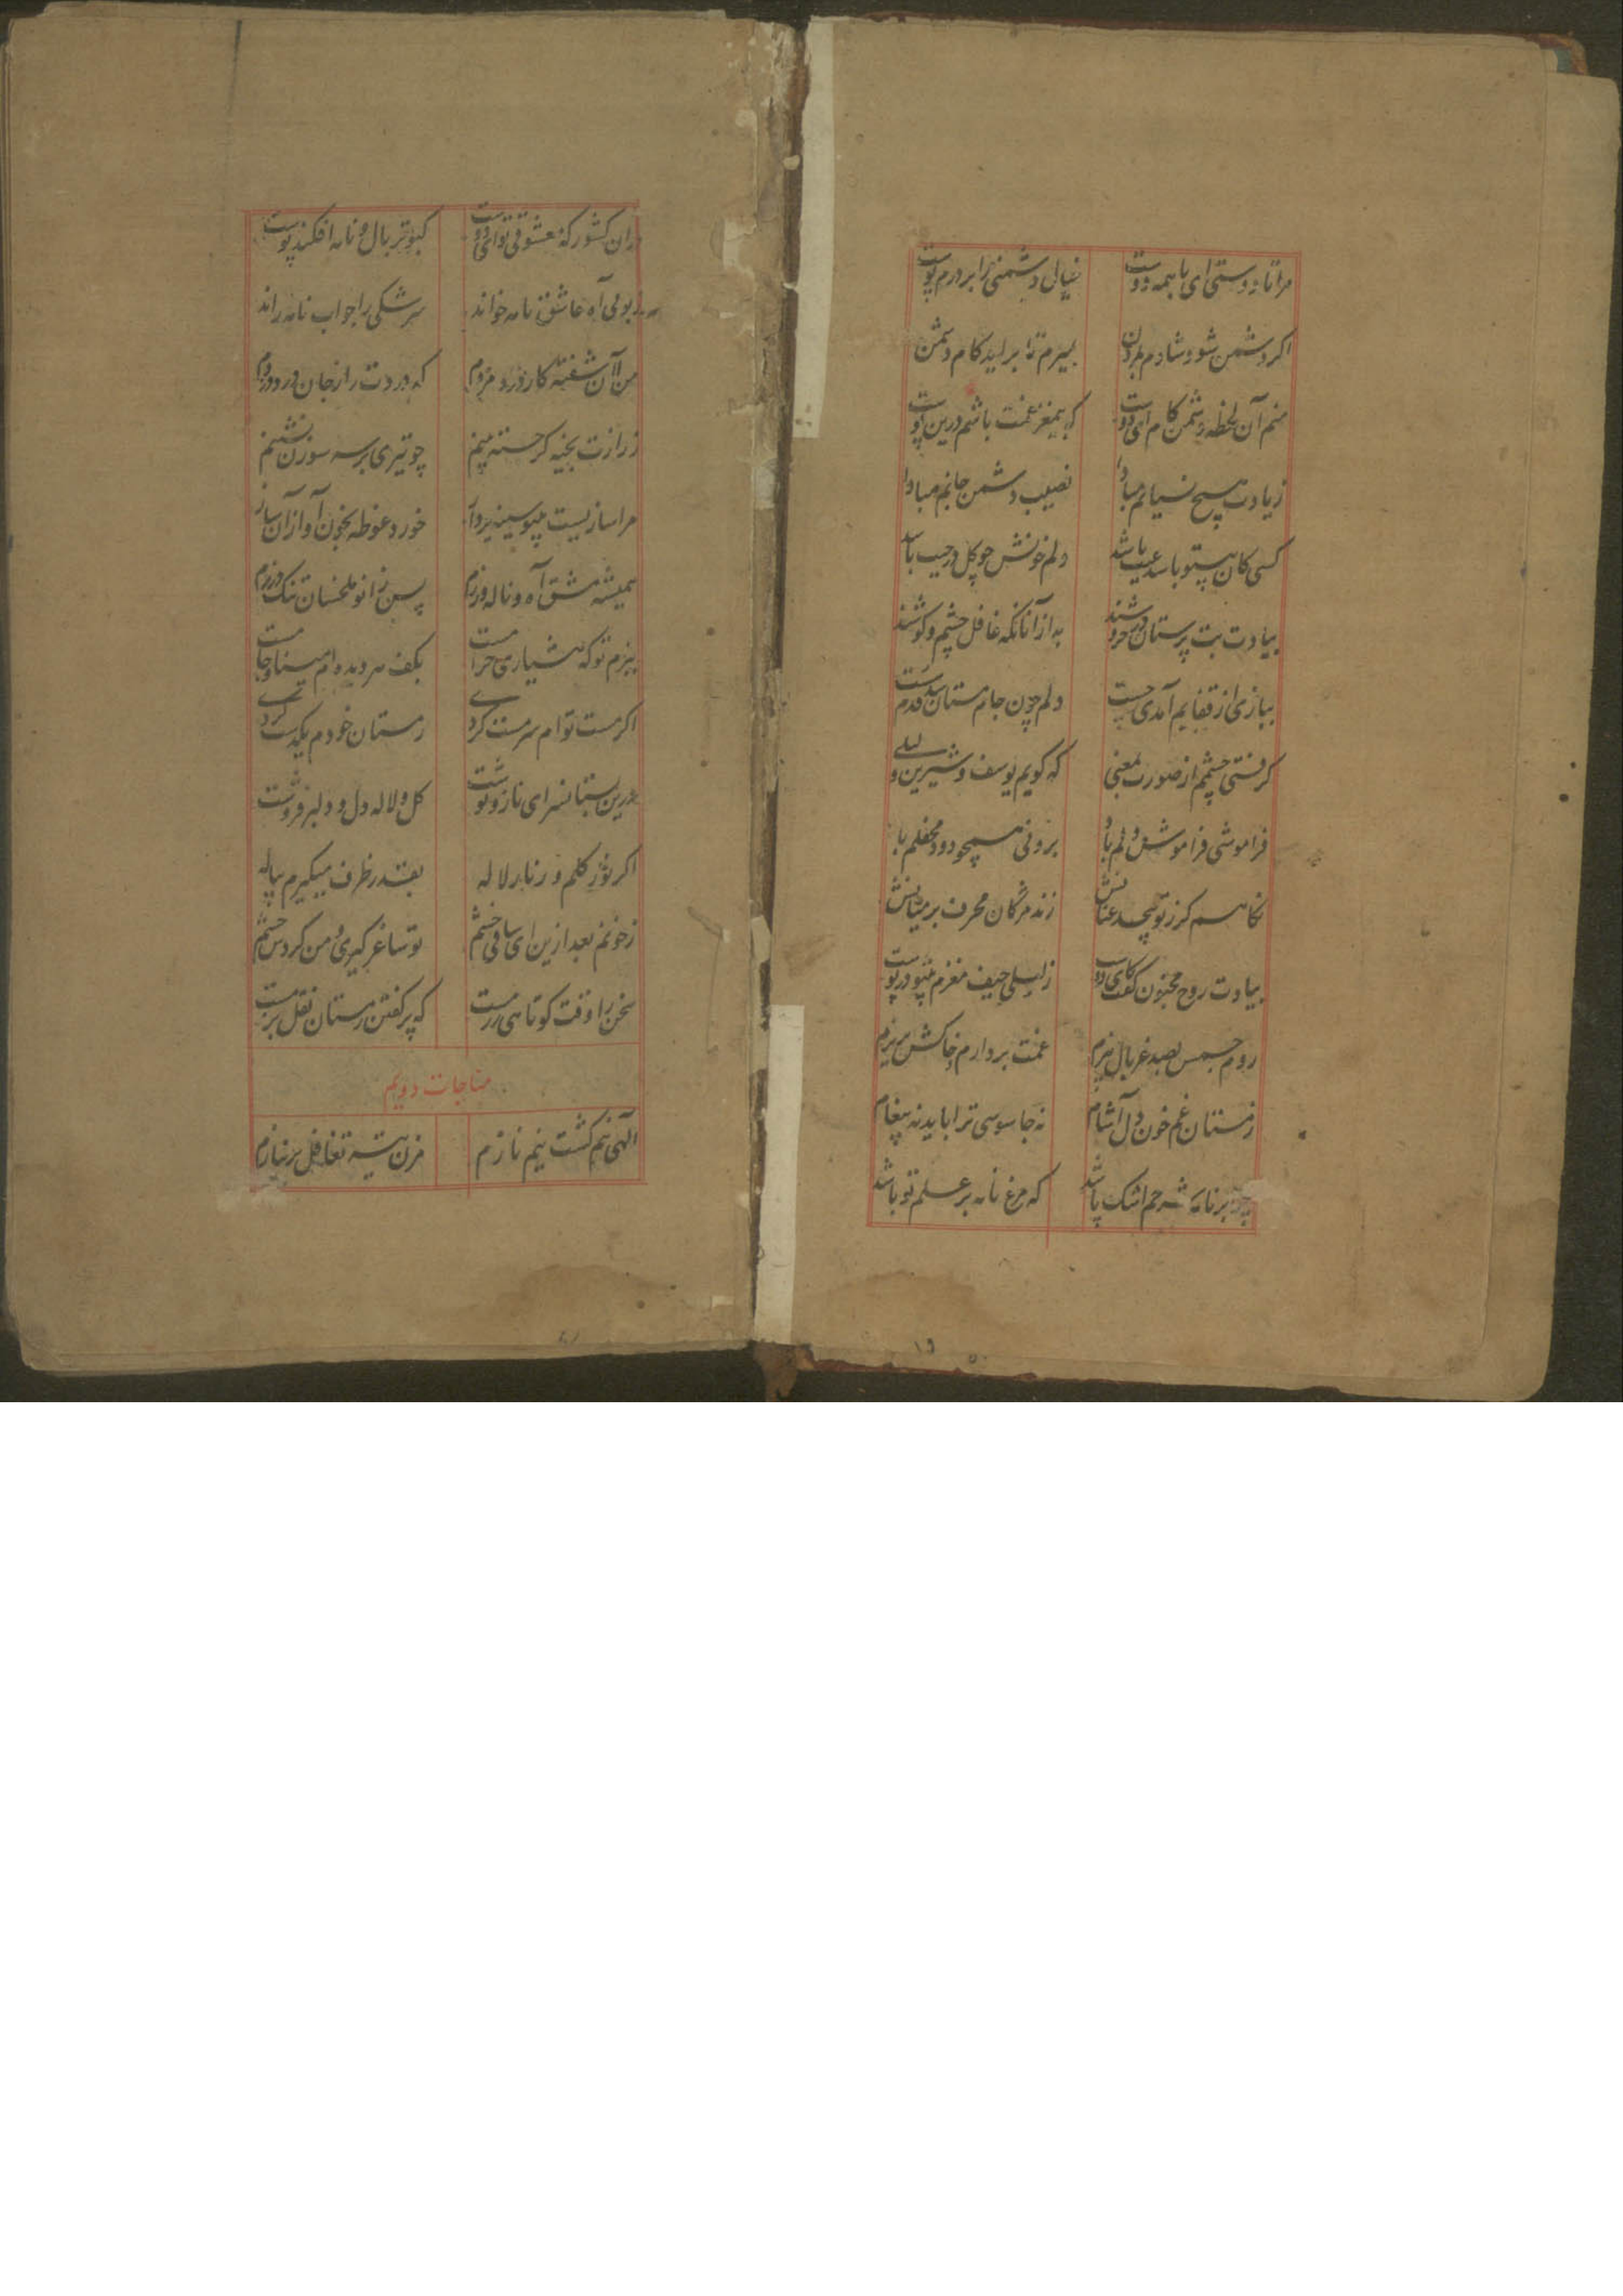 مرا تا دوستی ای با همه دوست خیال دشمنی را بر درم پوست
اگر دشمن شود شادم بمردن بمیرم تا براید کام دشمن
منم آن لحظه دشمن کام ای دوست که بیمغز غمت باشم درین پوست
زیادت هیچ نسیانم مبادا نصیب دشمن جانم مبادا
کسی کان بیتو باشد عیب باشد دلم خونش چو گل در جیب باشد
بیادت بت پرستان در خروشند به از آنانکه غافل چشم و گوشند
ببازی از قفایم آمدی چست دلم چون جام مستان شد قدم سست
گرفتی چشمم از صورت بمعنی که گویم یوسف و شیرین و لیلی
فراموشی فراموش دلم باد برونی همچو دود محفلم باد
نگاهم گر ز تو پیچد عنانش زند مژگان محرف بر میانش
بیادت روح مجنون گفت کای دوست ز لیلی حیف مغزم بیتو در پوست
روم جسمش بصد غربال بیزم غمت بردارم و خاکش بریزم
زمستان غم خون دل آشام نه جاسوسی ترا باید نه پیغام
چو بر نامه شرحم اشک باشد که مرغ نامه بر علم تو باشد
دران کشور که معشوقی تو ای دوست کبوتر بال و نامه افکند پوست
بوی آه عاشق نامه خواند سرشکی را جواب نامه راند
من آن آشفته کار درد مزدم که دردت را ز جان در دزدم
ز رازت بخیه گر جسته بینم چو تیری بر سر سوزن نشینم
مرا سازیست بیتو سینه پرداز خورد غوطه بخون آواز آن ساز
همیشه مشق آه و ناله ورزم پس زانو ملخسان تنگ درزم
ببزم تو که هشیاری حرامست بکف هر دیده‌ام مینا و جامست
اگر مست توام سرمست کردی ز مستان خودم یکدست کردی
درین بستانسرای ناز و نوشت گل و لاله دل و دلبر فروشت
اگر نوز گلم ور نابر لاله بقدر ظرف میگیرم پیاله
ز خونم بعد ازین ای ساقی خشم تو ساغر گیری و من گردش چشم
سخن را وقت کوتاهی رسست که پر گفتن ز مستان نقل بزمست
مناجات دویم
الهی نم کشت نیم نازم مزن تیشه تغافل بر نیازم
۱۹